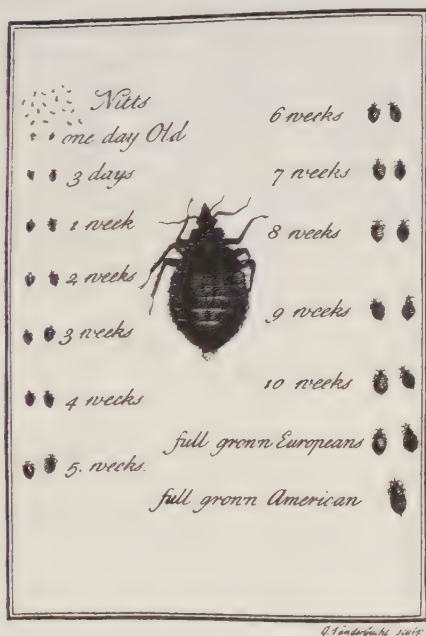 Nitts
one day Old
3 days
1 week
2 weeks
3 weeks
4 weeks
5. weeks.
6 weeks
7 weeks
8 weeks
9 weeks
10 weeks
full grown Europeans
full grown American
sculp.